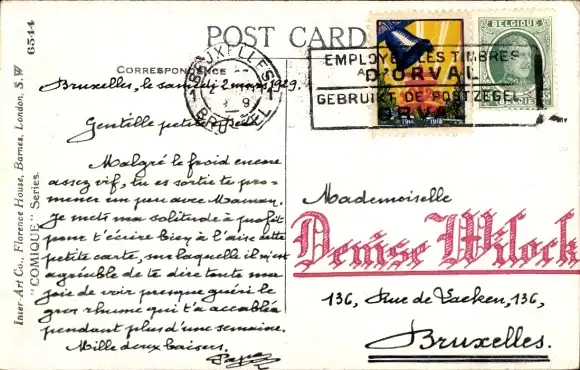 Inter Art Co., Florence House, Barnes, London, S.W
"COMIQUE" Series.
6544
POST CARD
CORRESPONDENCE
BRUXELLES 1
BRUSSEL
EMPLOYEZ LES TIMBRES
D'ORVAL
GEBRUIKT DE POSTZEGEL
BELGIQUE
1914 1918
Bruxelles, le samedi 2 mars 1929.
Gentille petite
Malgré le froid encore
assez vif, tu es sortie te pro-
mener un peu avec Maman.
Je mets ma solitude à profit
pour t'écrire bien à l'aise cette
petite carte, sur laquelle il m'est
agréable de te dire toute ma
joie de voir presque guéri le
gros rhume qui t'a accablée
pendant plus d'une semaine.
Mille doux baisers.
Papa
Mademoiselle
Denise Wilock
136, Rue de Laeken, 136,
Bruxelles.